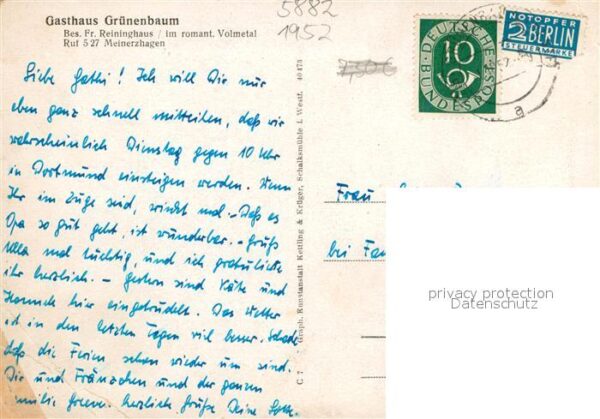 Gasthaus Grünenbaum
Bes. Fr. Reininghaus / im romant. Volmetal
Ruf 5 27 Meinerzhagen
5882
1952
Liebe Gathi! Ich will Dir nur
eben ganz schnell mitteilen, daß wir
wahrscheinlich Dienstag gegen 10 Uhr
in Dortmund einsteigen werden. Wenn
Ihr im Zuge seid, winkt mal. – Daß es
Opa so gut geht, ist wunderbar. – Grüß
Ulla mal tüchtig, und ich gratuliere
ihr herzlich. – Gestern sind Käte und
Hannek hier eingetrudelt. Das Wetter
ist in den letzten Tagen viel besser. Schade,
daß die Ferien schon wieder um sind.
Dir und Fränzchen und der ganzen
milie Greven herzliche Grüße Deine
C 7 Graph. Kunstanstalt Kettling & Krüger, Schalksmühle i. Westf. 40473
DEUTSCHE BUNDESPOST
10
NOTOPFER
2 BERLIN
STEUERMARKE
a
Frau
bei
privacy protection
Datenschutz